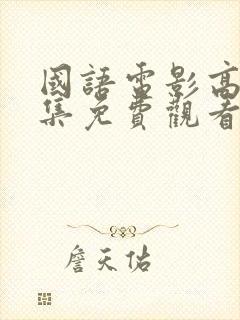 國語電影高
集免費觀看
詹天佑